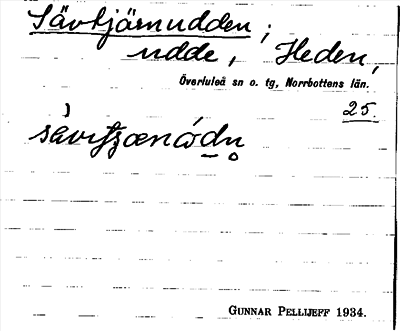 Sävtjärnudden;
udde, Heden,
Överluleå sn o. tg, Norrbottens län.
25.
GUNNAR PELLIJEFF 1934.